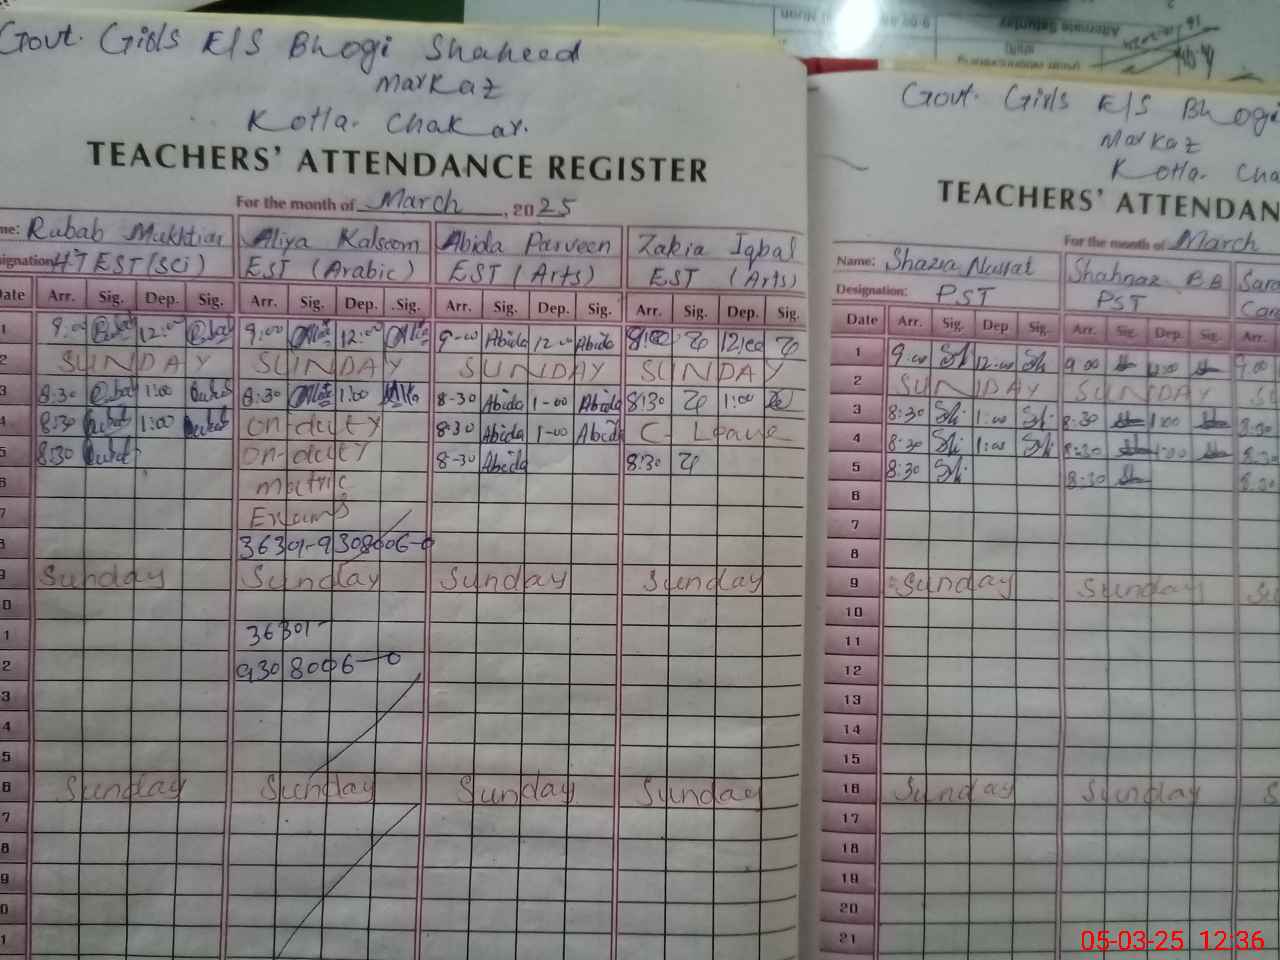 Govt. Girls E/S Bhogi Shaheed
Markaz
Kotla. Chakar.
TEACHERS' ATTENDANCE REGISTER
For the month of March, 2025
me: Rubab Mukhtiar Aliya Kalsoom Abida Parveen Zakia Iqbal
signation: HT EST(Sci) EST (Arabic) EST (Arts) EST (Arts)
Date Arr. Sig. Dep. Sig. Arr. Sig. Dep. Sig. Arr. Sig. Dep. Sig. Arr. Sig. Dep. Sig.
1 9:00 12:00 9:00 12:00 9-00 Abida 12-00 Abida 9:00 12:00
2 SUNDAY SUNDAY SUNDAY SUNDAY
3 8:30 1:00 8:30 1:00 8-30 Abida 1-00 Abida 8:30 1:00
4 8:30 1:00 on-duty 8-30 Abida 1-00 Abida C- Leave
5 8:30 on-duty 8-30 Abida 8:30
6 matric
7 Exams
8 36301-9308006-0
9 Sunday Sunday Sunday Sunday
0
1 36301-
2 9308006-0
3
4
5
6 Sunday Sunday Sunday Sunday
7
8
9
0
1
Govt. Girls E/S Bhogi
Markaz
Kotla. Cha
TEACHERS' ATTENDAN
For the month of March
Name: Shazia Nusrat Shahnaz B.B Sara
Designation: PST PST
Date Arr. Sig. Dep. Sig. Arr. Sig. Dep. Sig. Arr.
1 9:00 Sh 12:00 Sh 9:00 12:00 9:00
2 SUNDAY SUNDAY SU
3 8:30 Sh 1:00 Sh 8:30 1:00 8:30
4 8:30 Sh 1:00 Sh 8:30 1:00 8:30
5 8:30 Sh 8:30 8:30
6
7
8
9 Sunday Sunday Su
10
11
12
13
14
15
16 Sunday Sunday S
17
18
19
20
21
05-03-25 12:36